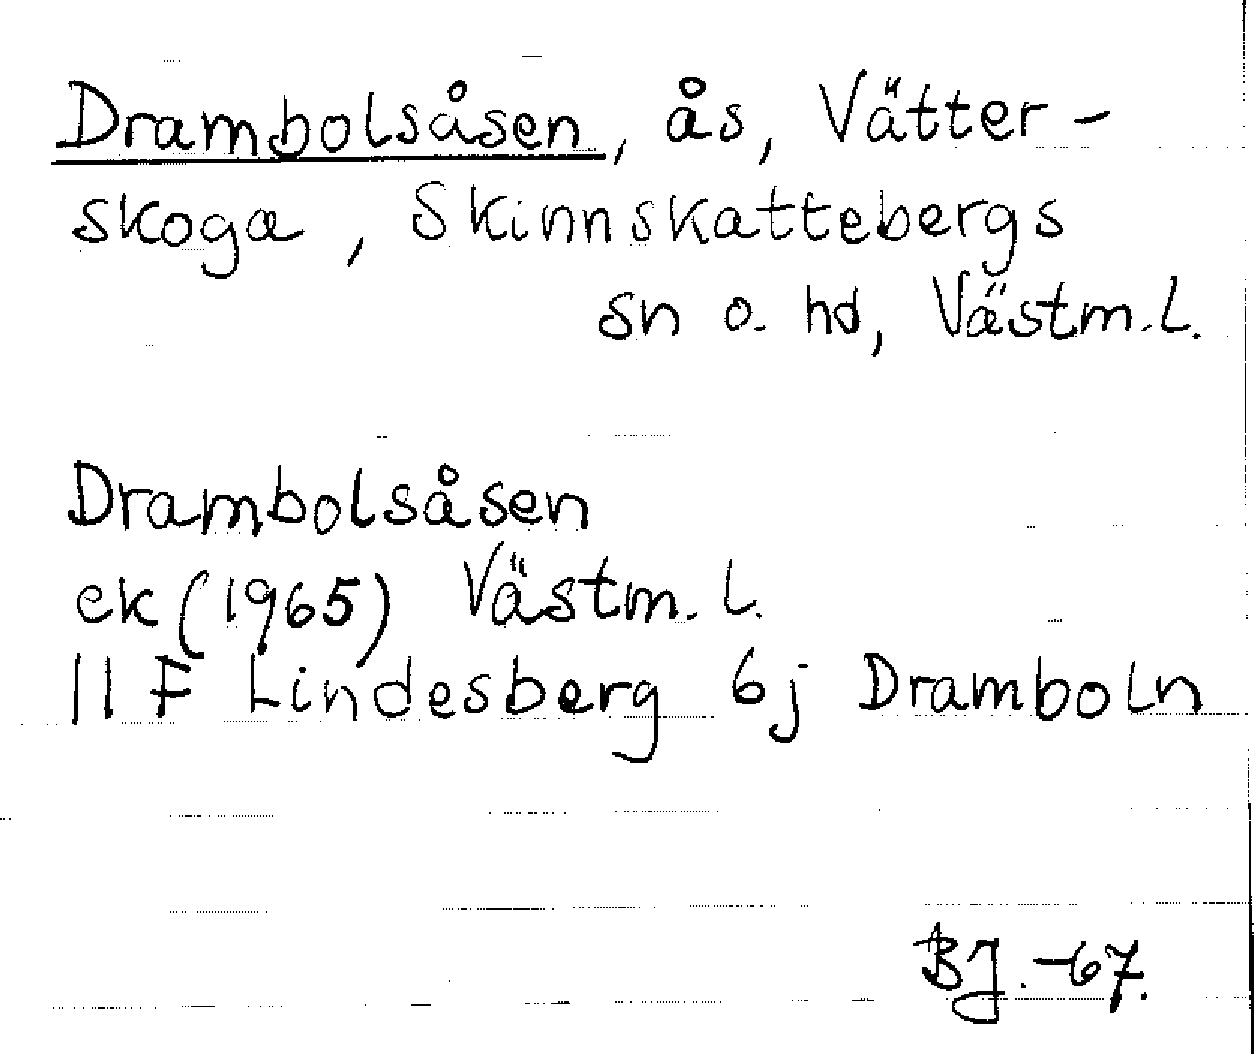 Drambolsåsen, ås, Vätter-
skoga, Skinnskattebergs
sn o. hd, Västm.l.
Drambolsåsen
ek (1965) Västm. l.
11 F Lindesberg 6j Dramboln
BJ. -67.